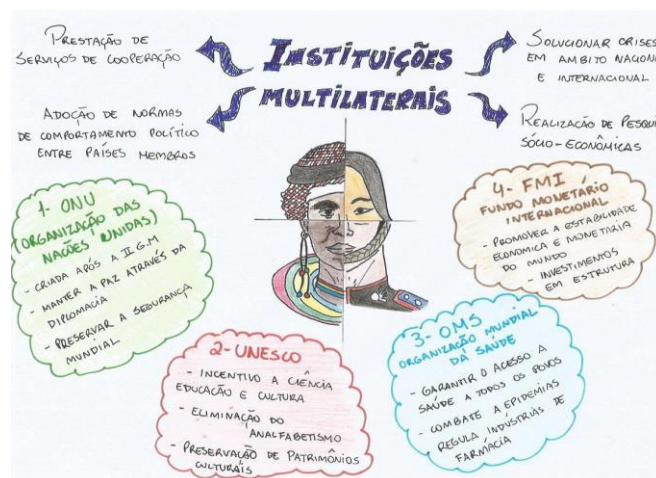 INSTITUIÇÕES
MULTILATERAIS
PRESTAÇÃO DE
SERVIÇOS DE COOPERAÇÃO
ADOÇÃO DE NORMAS
DE COMPORTAMENTO POLÍTICO
ENTRE PAÍSES MEMBROS
SOLUCIONAR CRISES
EM AMBITO NACION
E INTERNACIONAL
REALIZAÇÃO DE PESQUI
SÓCIO-ECONÔMICAS
1- ONU
(ORGANIZAÇÃO DAS
NAÇÕES UNIDAS)
- CRIADA APÓS A II G.M
- MANTER A PAZ ATRAVÉS DA
DIPLOMACIA
- PRESERVAR A SEGURANÇA
MUNDIAL
2- UNESCO
- INCENTIVO A CIÊNCIA
EDUCAÇÃO E CULTURA
- ELIMINAÇÃO DO
ANALFABETISMO
- PRESERVAÇÃO DE PATRIMÔNIOS
CULTURAIS
3- OMS
ORGANIZAÇÃO MUNDIAL
DA SAÚDE
- GARANTIR O ACESSO A
SAÚDE A TODOS OS POVOS
- COMBATE A EPIDEMIAS
REGULA INDÚSTRIAS DE
FARMÁCIA
4- FMI
FUNDO MONETÁRIO
INTERNACIONAL
- PROMOVER A ESTABILIDADE
ECONOMICA E MONETARIA
DO MUNDO
- INVESTIMENTOS
EM ESTRUTURA